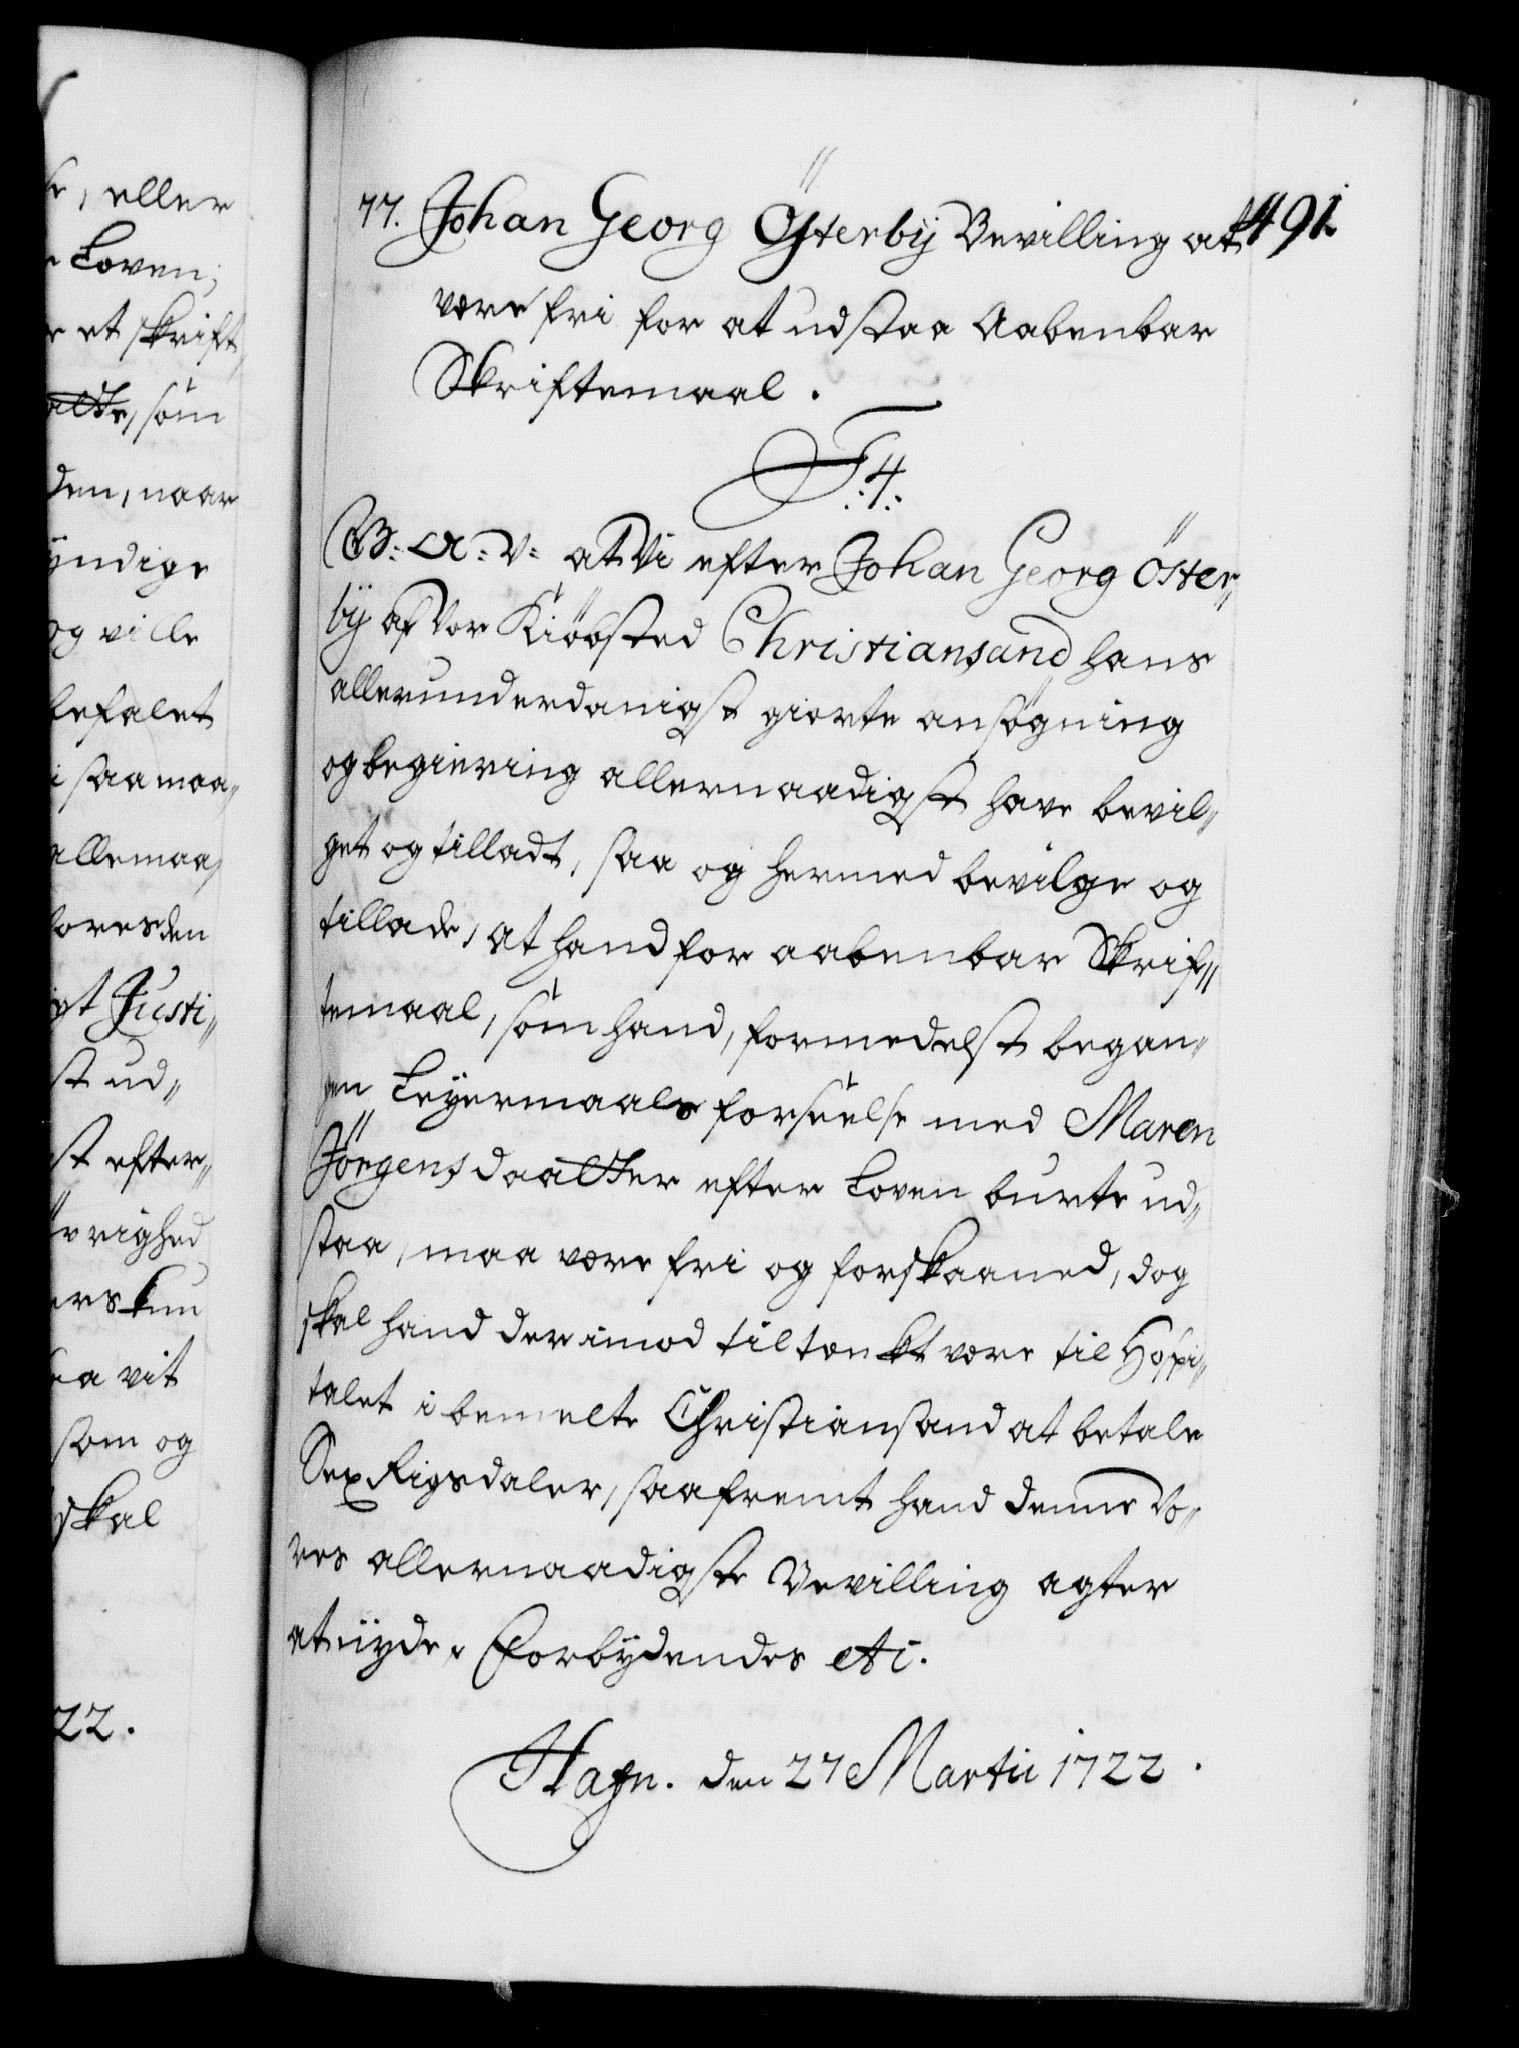 e, eller
Loven;
r et skrift
alter, som
den, naar
yndige
og ville
befalet
i saa maa„
allemaa
lores den
et Justi„
st ud„
st efter„
øvrighed
ers kun
ea vit
som og
skal
22.
491.
77. Johan Georg Österbÿ Bevilling at
være fri for at udstaa Aabenbar
Skriftemaal.
F. 4.
G: A: V: at Vi efter Johan Georg Öster„
bÿ af Vor Kiöbsted Christiansand hans
allerunderdanigst giorte ansøgning
og begiering allernaadigst have bevil„
get og tilladt, saa og hermed bevilge og
tillade, at hand for aabenbar Skrif„
temaal, som hand, formedelst began„
gen Leÿermaals forseelse med Maren
Jörgensdaatter efter Loven burte ud„
staa, maa være fri og forskaaned, dog
skal hand derimod tiltænkt være til Hospi„
talet i bemelte Christiansand at betale
Sex Rigsdaler, saafremt hand denne Vo„
res allernaadigste Bevilling agter
at nÿde. Forbÿdendes etc.
Hafn. den 27 Martii 1722.